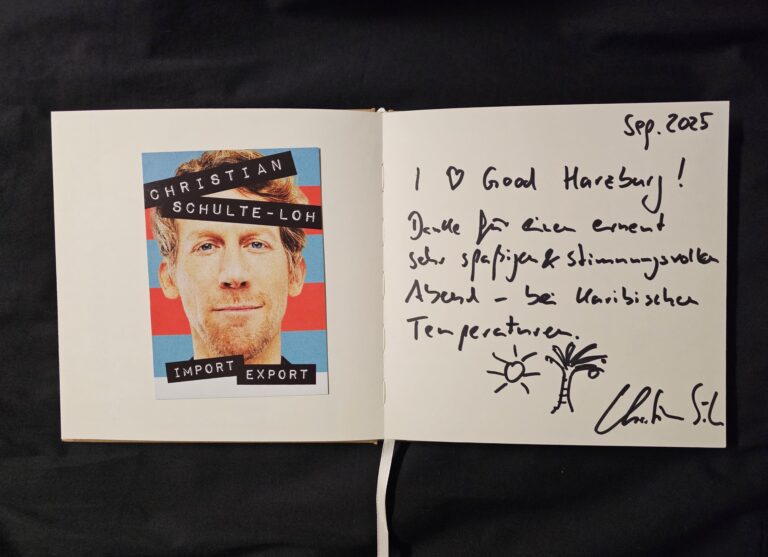 CHRISTIAN
SCHULTE-LOH
IMPORT
EXPORT
Sep. 2025
I ♡ Good Harzburg!
Danke für einen erneut
sehr spaßigen & stimmungsvollen
Abend – bei karibischen
Temperaturen.